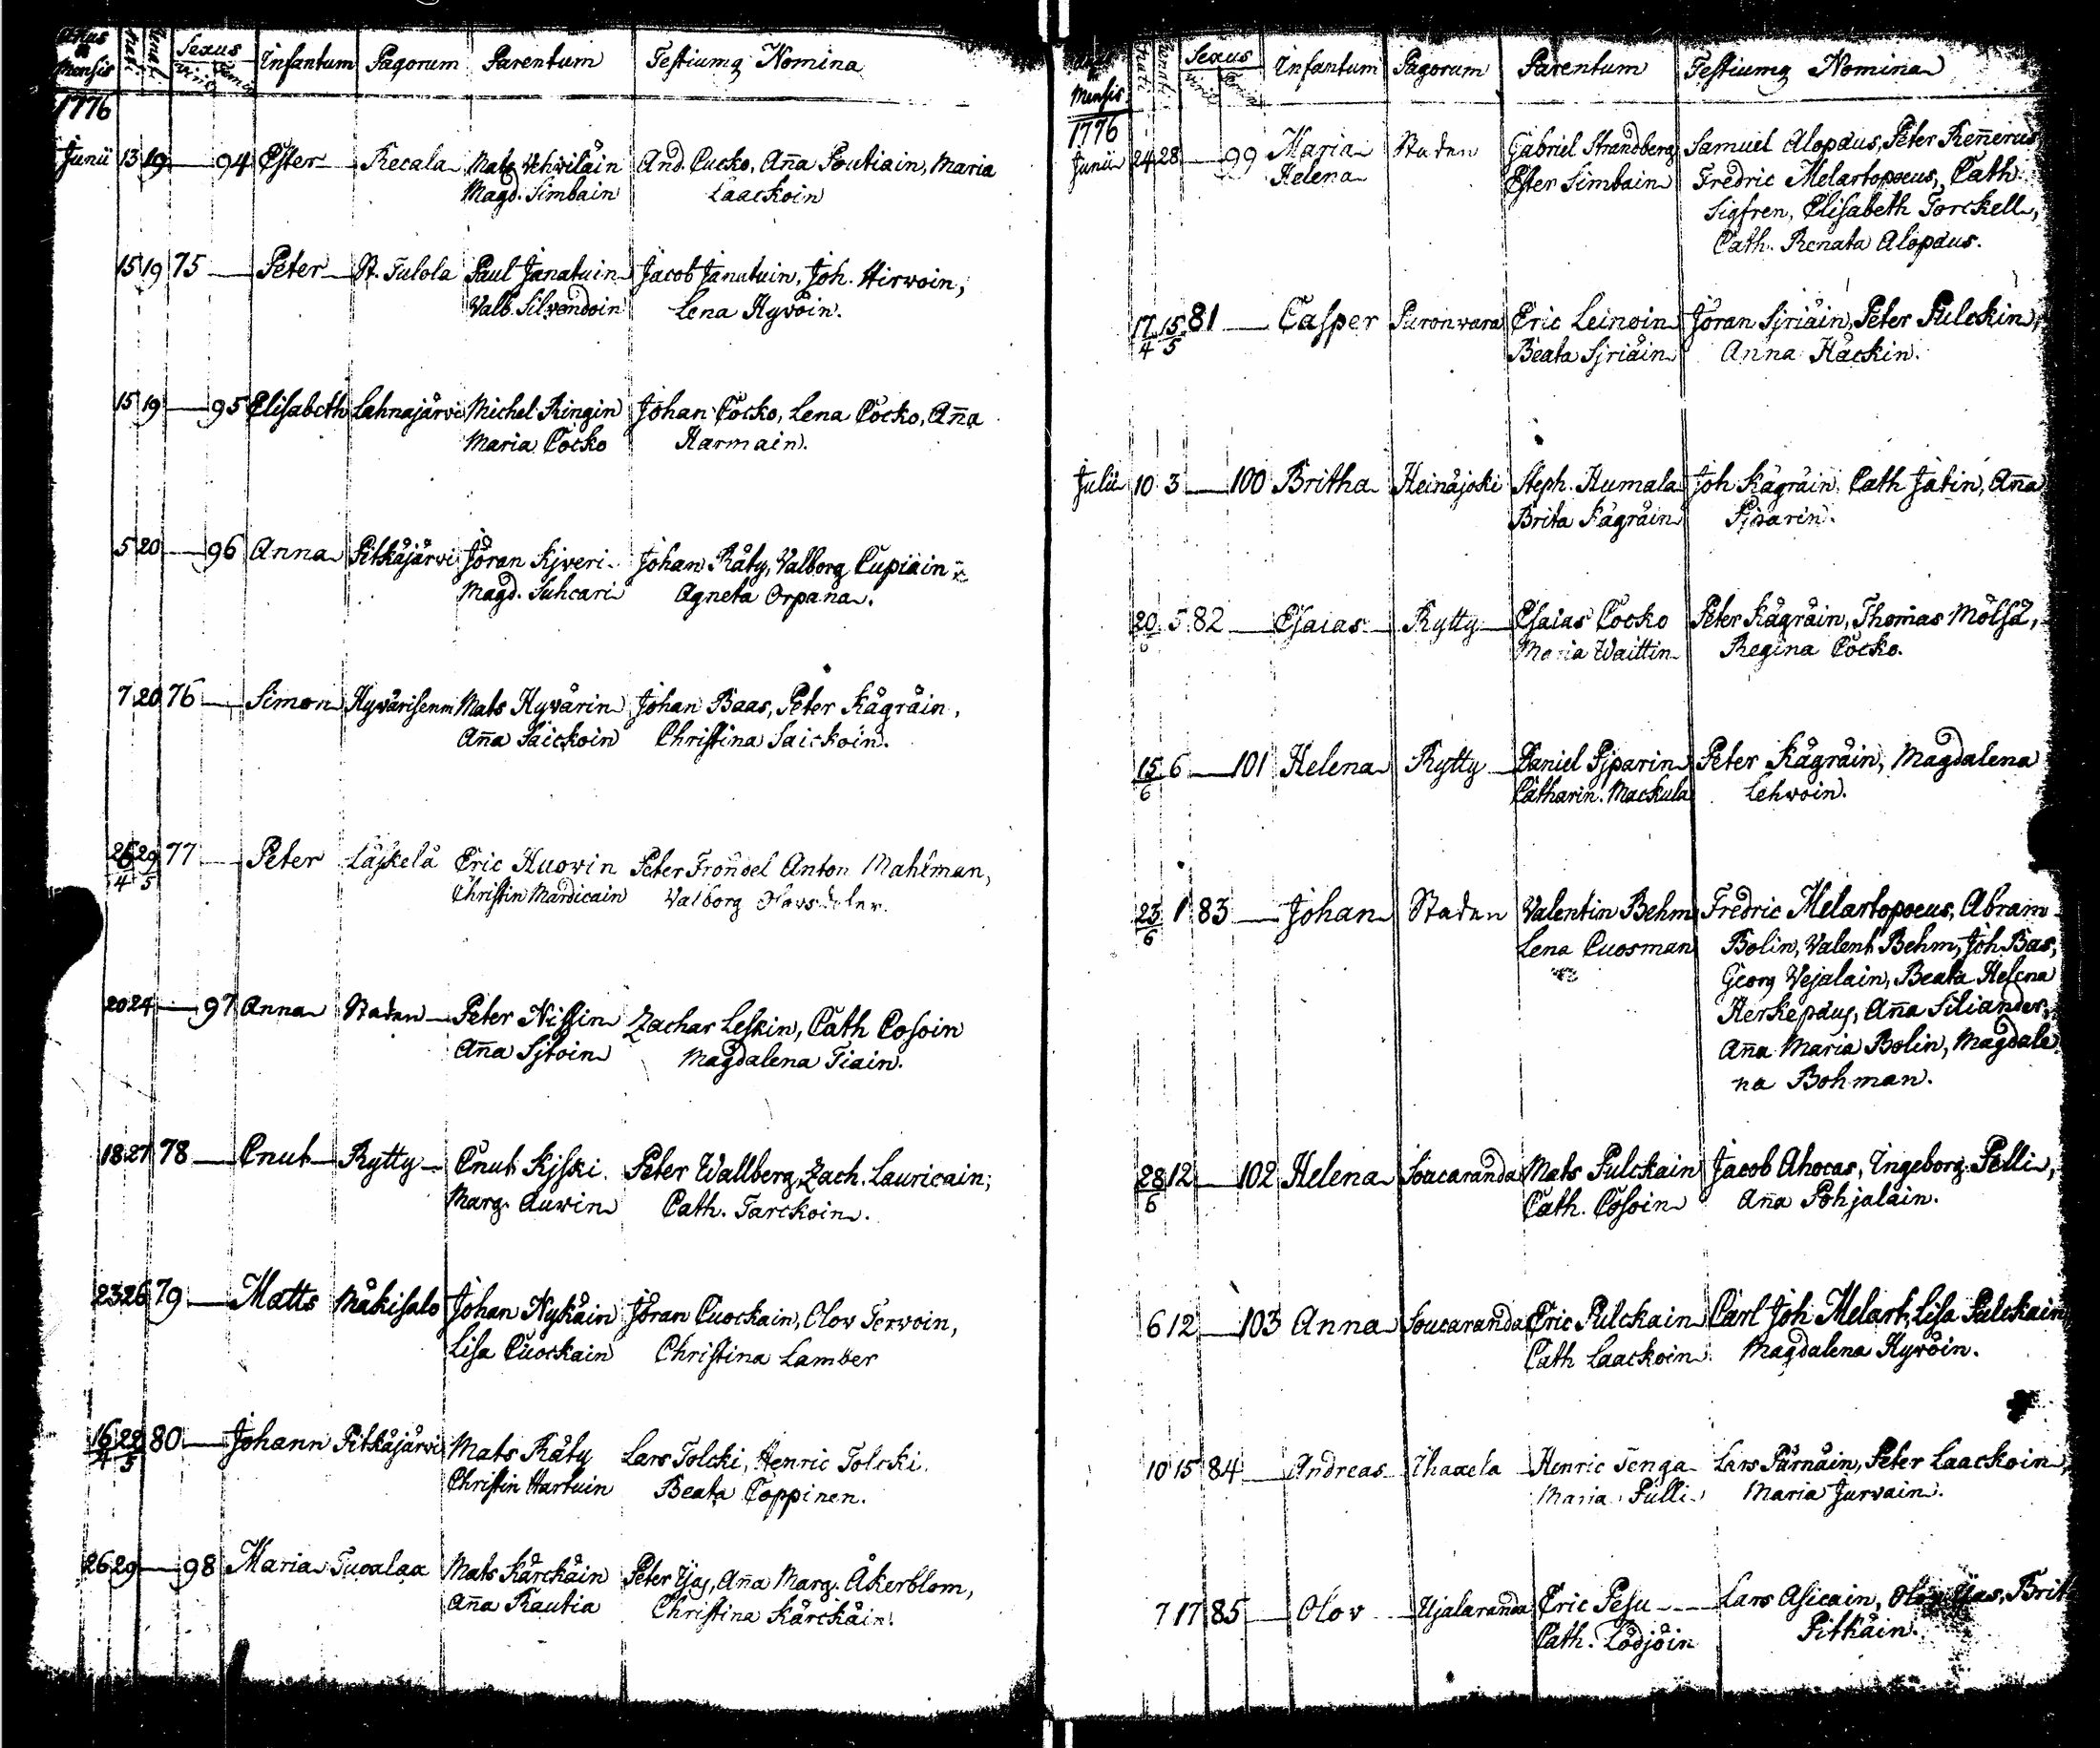 Annus & Mensis Nati Renati Sexus Viril Femin Infantum Pagorum Parentum Testiumq Nomina
1776
Junii 13 19 — 94 Ester Recala Mats Vehviläin And. Cucko, Aña Poutiain, Maria
Magd. Simbain Laackoin
15 19 75 — Peter St. Tulola Paul Janatuin Jacob Janatuin, Joh. Hirvoin,
Valb. Silvendoin Lena Hyvöin.
15 19 — 95 Elisabeth Lahnajärvi Michel Ringin Johan Cocko, Lena Cocko, Aña
Maria Cocko Harmain.
5 20 — 96 Anna Pitkäjärvi Jöran Kjveri Johan Räty, Valborg Cupiain
Magd. Suhcari Agneta Orpana.
7 20 76 — Simon Hyvärisenm Mats Hyvärin Johan Baas, Peter Kägräin,
Aña Saickoin Christina Saickoin.
26/4 29/5 77 — Peter Läskelä Eric Huovin Peter Trondel Anton Mahlman,
Christin Mardicain Valborg
20 24 — 97 Anna Staden Peter Nissin Zachar Leskin, Cath Cosoin
Aña Sjtoin Magdalena Tiain.
18 27 78 — Cnut Rytty Cnut Kjski Peter Wallberg, Zach. Lauricain,
Marg. Auvin Cath. Tarckoin.
23 26 79 — Matts Mäkisalo Johan Nykäin Jöran Cuockain, Olov Tervoin,
Lisa Cuockain Christina Lamber
16/4 22/5 80 — Johann Pitkäjärvi Mats Räty Lars Tolcki, Henric Tolcki
Christin Hartuin Beata Toppinen.
26 29 — 98 Maria Tuoalaa Mats Kärckäin Peter Yjas, Aña Marg. Åkerblom,
Aña Rautia Christina Kärckäin.
Annus & Mensis Nati Renati Sexus Viril Femin Infantum Pagorum Parentum Testiumq Nomina
1776
Junii 24 28 — 99 Maria Staden Gabriel Strandberg Samuel Alopäus, Peter Reñerus
Helena Ester Simbain Fredric Melartopoeus, Cath
Sigfren, Elisabeth Torckell,
Cath. Renata Alopäus.
17/4 15/5 81 — Casper Puronvara Eric Leinoin Jöran Sjriäin, Peter Pulckin,
Beata Sjriäin Anna Häckin.
Julii 10 3 — 100 Britha Heinäjoki Steph. Humala Joh Kägräin, Cath Jätin, Aña
Brita Kägräin Pjparin.
20/6 5 82 — Esaias Rytty Esaias Cocko Peter Kägräin, Thomas Mölsä,
Maria Waittin Regina Cocko.
15/6 6 — 101 Helena Rytty Daniel Pjparin Peter Kägräin, Magdalena
Catharin. Mackula Lehvoin.
23/6 1 83 — Johan Staden Valentin Behm Fredric Melartopoeus, Abram
Lena Cuosman Bolin, Valent Behm, Joh Bas,
Georg Vejalain, Beata Helena
Herkepäus, Aña Siliander,
Aña Maria Bolin, Magdale
na Bohman.
28/6 12 — 102 Helena Soucaranda Mats Pulckain Jacob Ahocas, Ingeborg Pelli,
Cath. Cosoin Aña Pohjalain.
6 12 — 103 Anna Soucaranda Eric Pulckain Carl Joh Melart, Lisa Pulckain
Cath Laackoin Magdalena Hyvöin.
10 15 84 — Andreas Ihaxela Henric Tenga Lars Pärnäin, Peter Laackoin,
Maria Pulli Maria Jurvain.
7 17 85 — Olov Ujalaranda Eric Pesu Lars Asicain, Olov Yjas, Brit
Cath. Lodjöin Pitkäin.